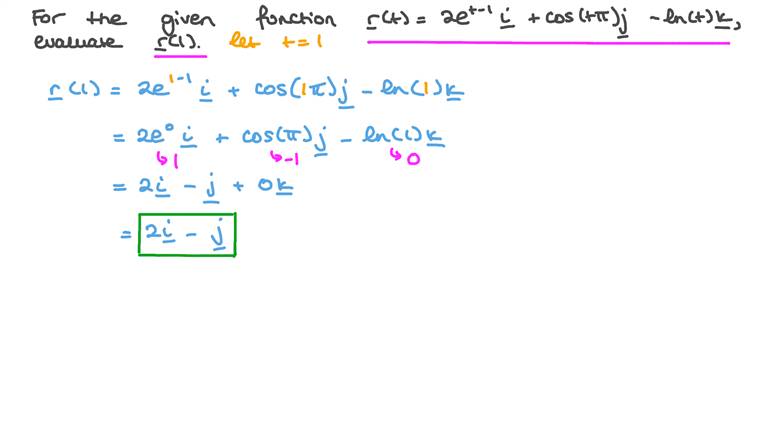 For the given function r(t) = 2e^(t-1) i + cos(tπ) j - ln(t) k,
evaluate r(1). let t = 1
r(1) = 2e^(1-1) i + cos(1π) j - ln(1) k
= 2e^0 i + cos(π) j - ln(1) k
↳1 ↳-1 ↳0
= 2i - j + 0k
= 2i - j